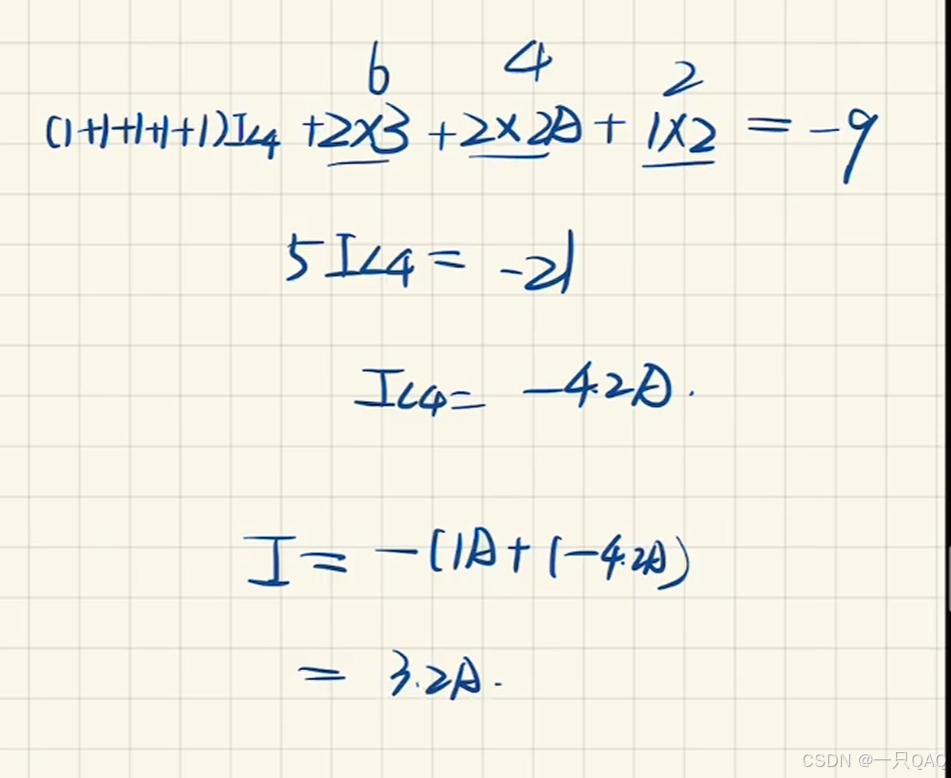 6 4 2
(1+1+1+1+1)IL4 +2×3 +2×2A + 1×2 = -9
5IL4 = -21
IL4 = -4.2A.
I = -(1A + (-4.2A)
= 3.2A.
CSDN @一只QAQ